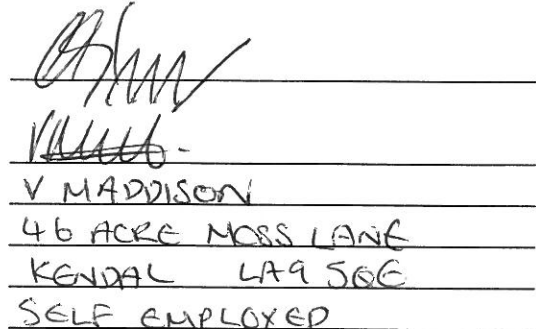 V MADDISON
46 ACRE MOSS LANE
KENDAL LA9 5QE
SELF EMPLOYED